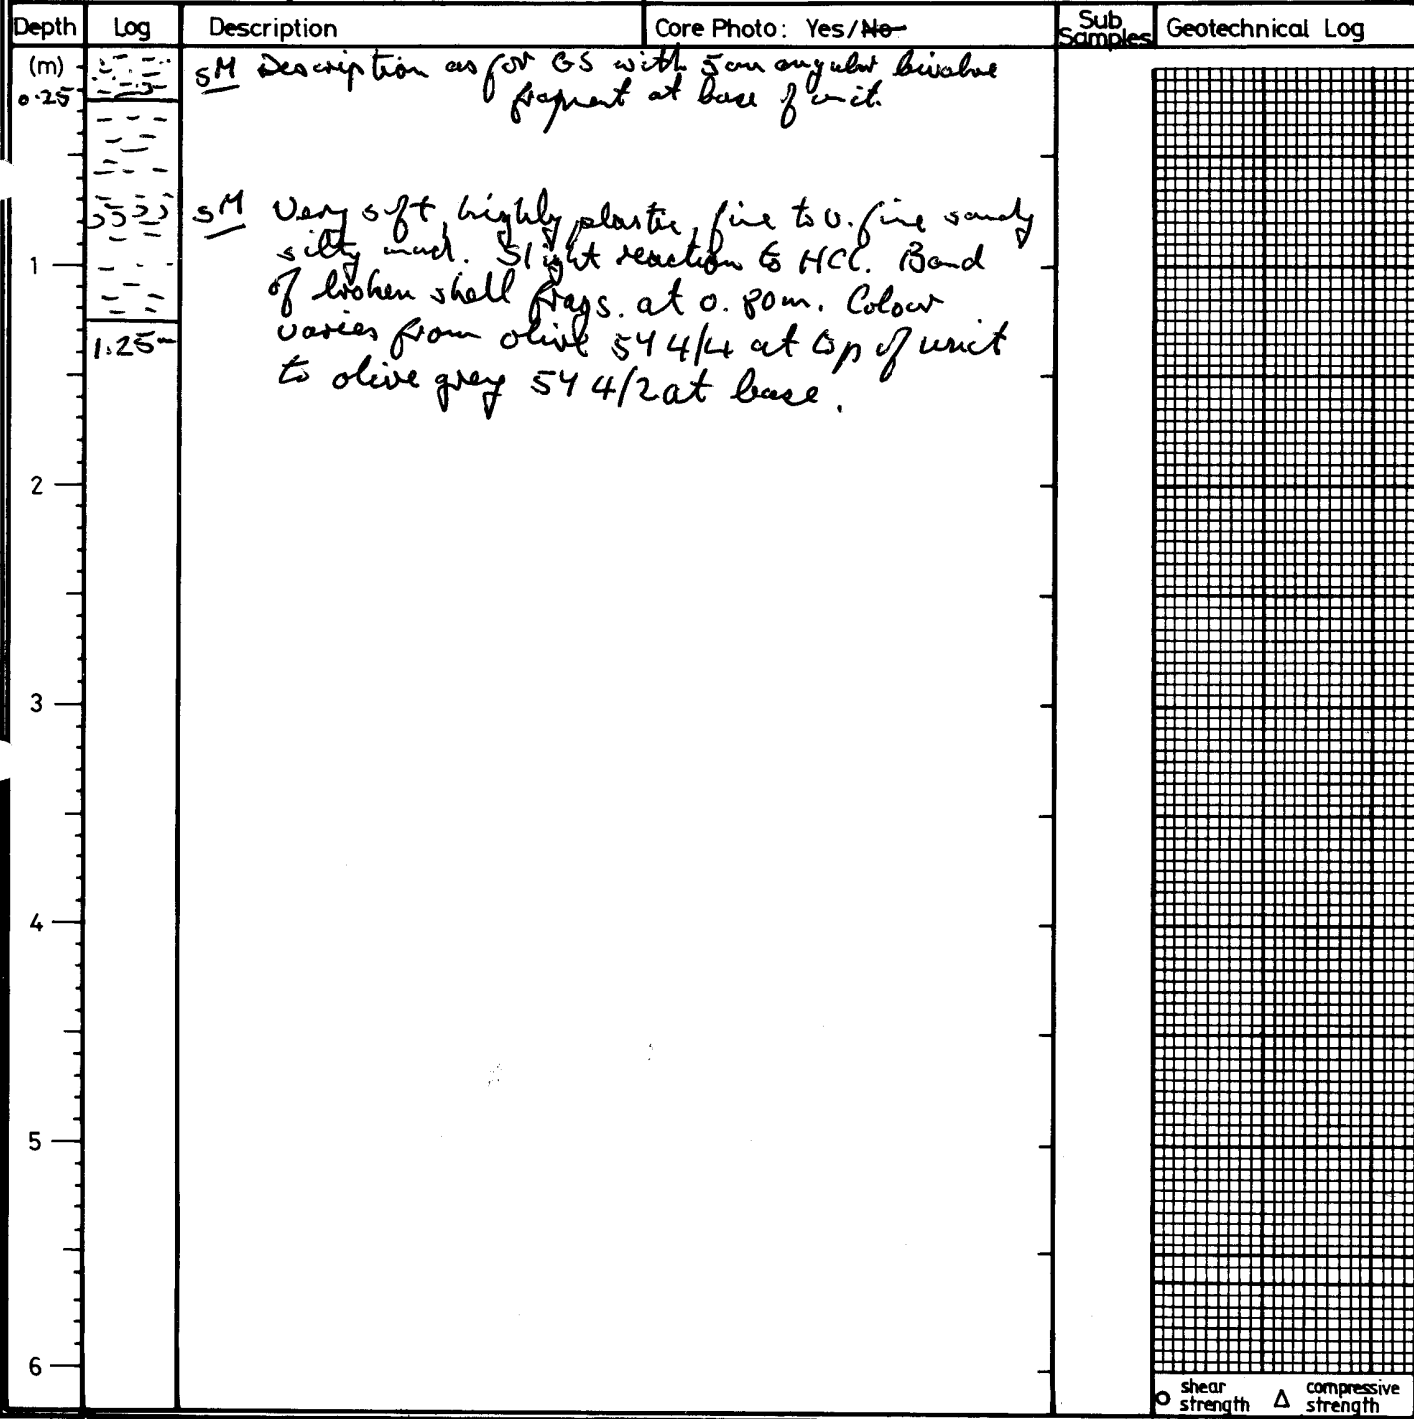 Depth Log Description Core Photo: Yes/No Sub Samples Geotechnical Log
(m)
0.25
sM Description as for GS with 5cm angular bivalve
fragment at base of unit.
sM Very soft, highly plastic, fine to v. fine sandy
silty mud. Slight reaction to HCl. Band
of broken shell frags. at 0.80m. Colour
varies from olive 5Y 4/4 at top of unit
to olive grey 5Y 4/2 at base.
1
1.25m
2
3
4
5
6
shear strength
compressive strength